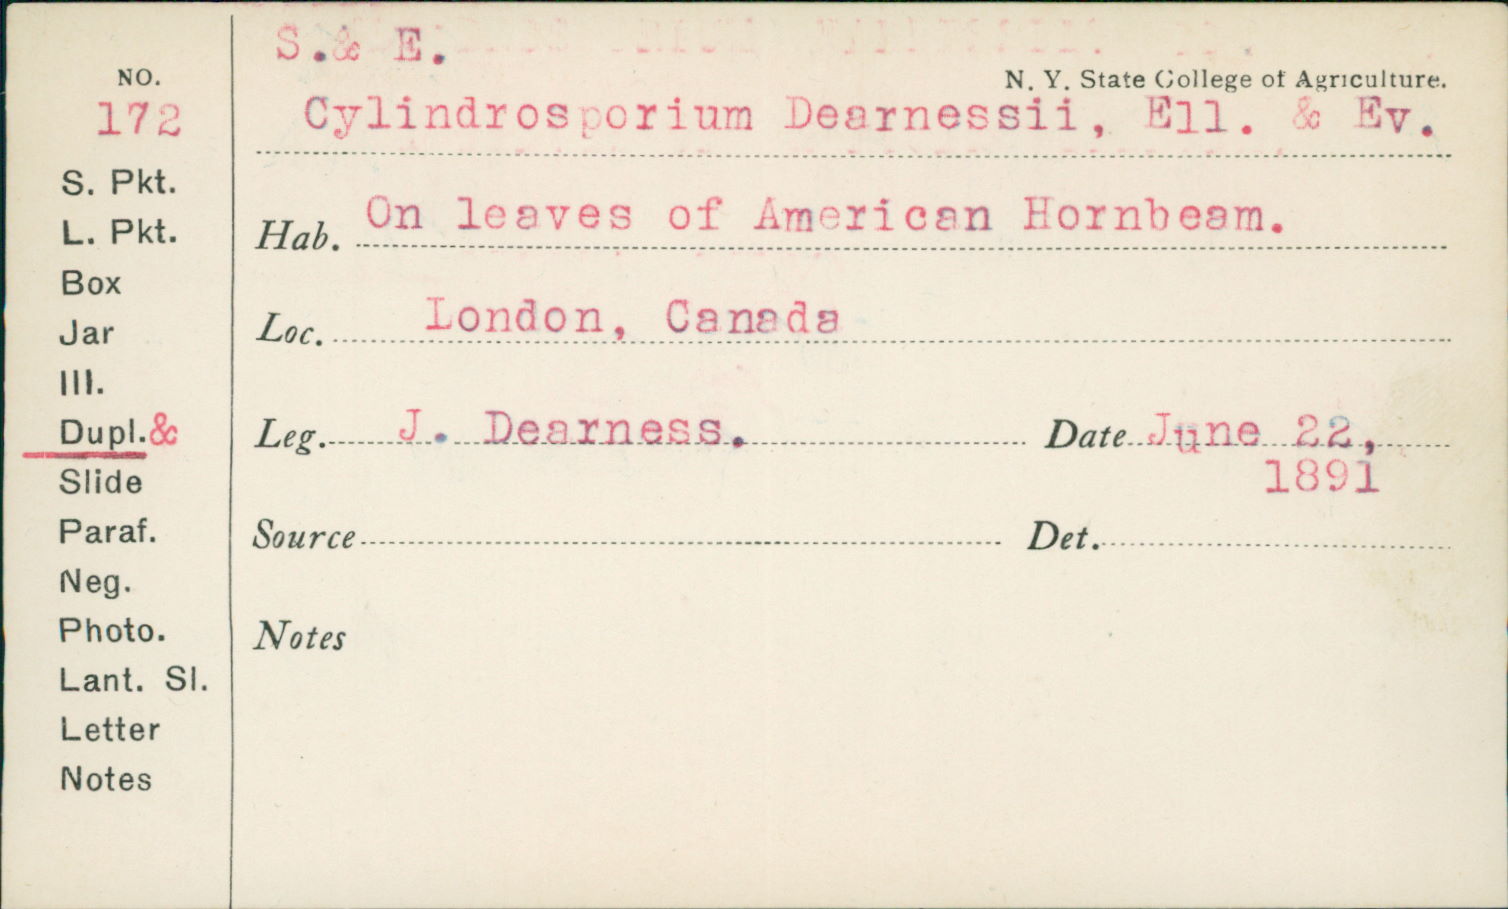 NO.
172
S. Pkt.
L. Pkt.
Box
Jar
Ill.
Dupl.&
Slide
Paraf.
Neg.
Photo.
Lant. Sl.
Letter
Notes
S.& E.
N. Y. State College of Agriculture.
Cylindrosporium Dearnessii, Ell. & Ev.
Hab. On leaves of American Hornbeam.
Loc. London, Canada
Leg. J. Dearness. Date June 22,
1891
Source Det.
Notes